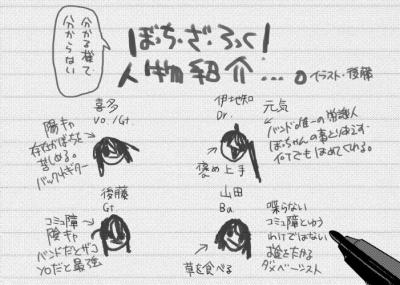 分かる様で
分からない
ぼっち・ざ・ろっく!
人物紹介...。
イラスト・後藤
喜多
Vo./Gt.
陽キャ
存在がぼっちを
苦しめる。
バックトギター
伊地知
Dr.
元気
バンド唯一の常識人
ぼっちゃんの事とりあえず
何でもほめてくれる。
褒め上手
後藤
Gt
コミュ障
陰キャ
バンドだとザコ
ソロだと最強
山田
Ba
喋らない
コミュ障とゆう
わけではない
お金をたかる
ダメベーシスト
草を食べる